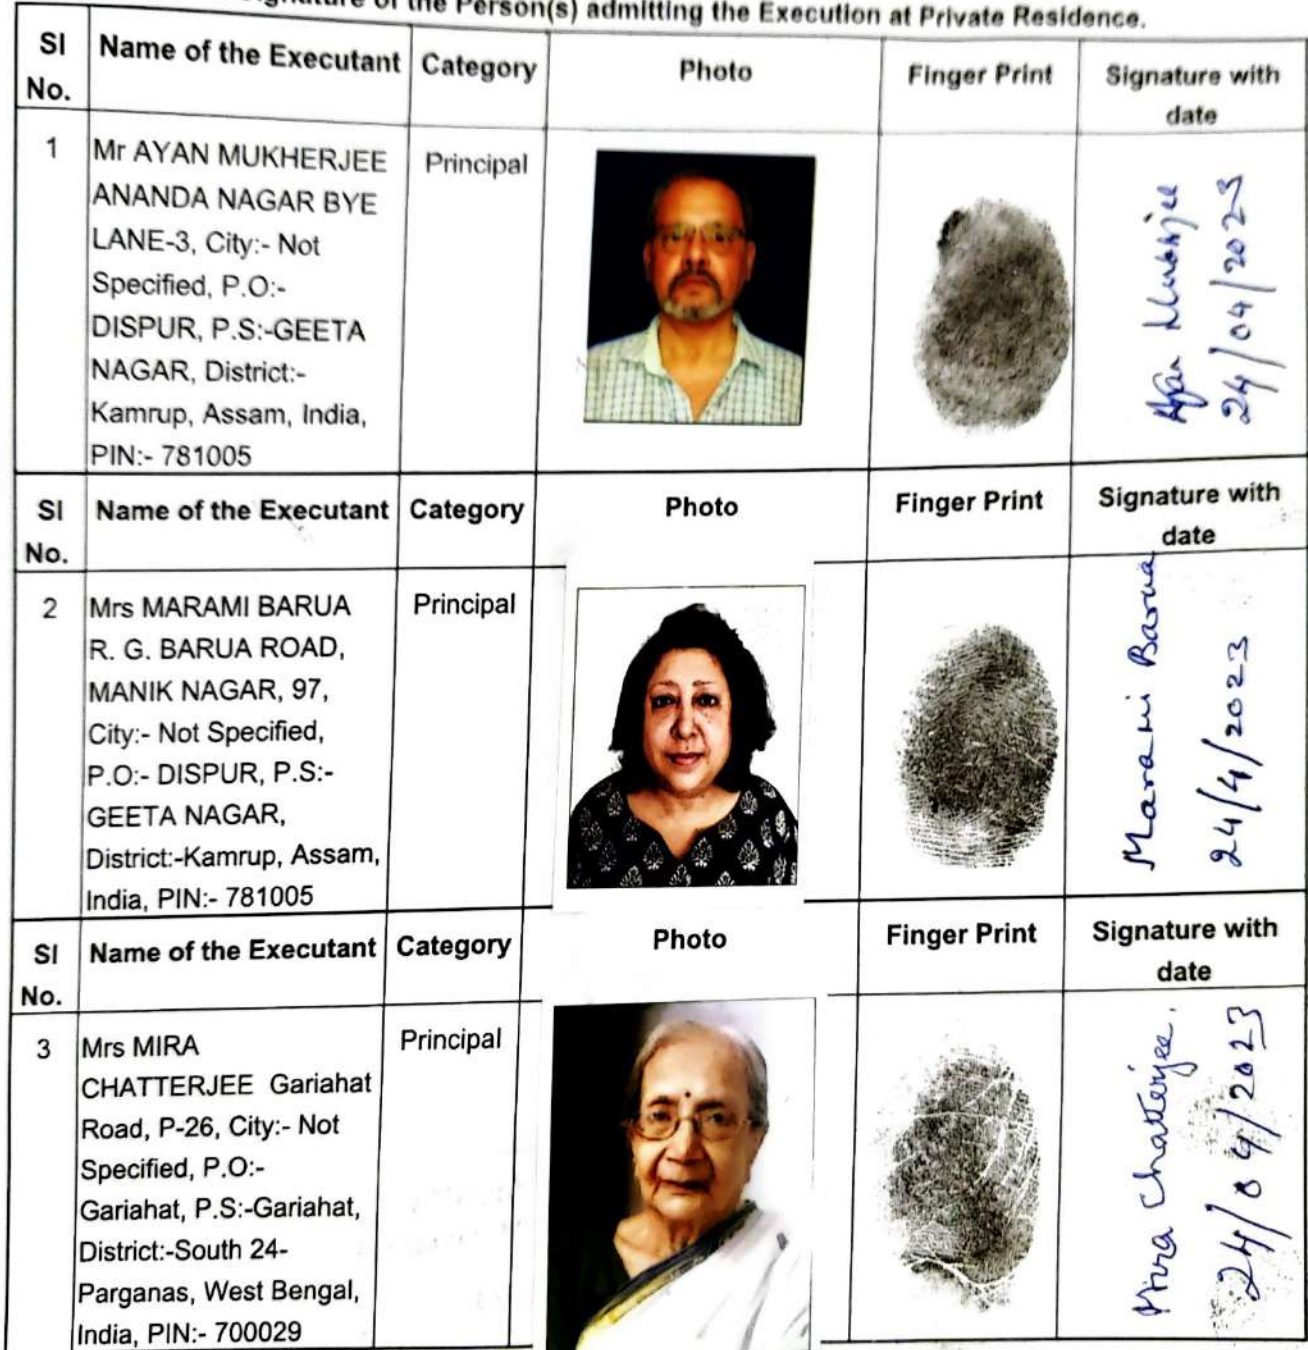 Signature of the Person(s) admitting the Execution at Private Residence.
Sl No. Name of the Executant Category Photo Finger Print Signature with date
1 Mr AYAN MUKHERJEE Principal
ANANDA NAGAR BYE
LANE-3, City:- Not
Specified, P.O:-
DISPUR, P.S:-GEETA
NAGAR, District:-
Kamrup, Assam, India,
PIN:- 781005
Ayan Mukherjee
24/04/2023
Sl No. Name of the Executant Category Photo Finger Print Signature with date
2 Mrs MARAMI BARUA Principal
R. G. BARUA ROAD,
MANIK NAGAR, 97,
City:- Not Specified,
P.O:- DISPUR, P.S:-
GEETA NAGAR,
District:-Kamrup, Assam,
India, PIN:- 781005
Marami Barua
24/4/2023
Sl No. Name of the Executant Category Photo Finger Print Signature with date
3 Mrs MIRA Principal
CHATTERJEE Gariahat
Road, P-26, City:- Not
Specified, P.O:-
Gariahat, P.S:-Gariahat,
District:-South 24-
Parganas, West Bengal,
India, PIN:- 700029
Mira Chatterjee.
24/04/2023